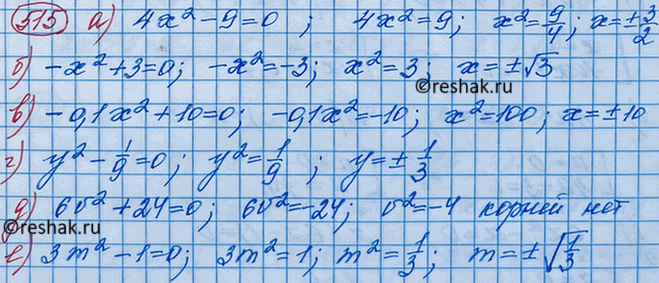 515 а) 4x² - 9 = 0 ; 4x² = 9; x² = 9/4; x = ±3/2
б) -x² + 3 = 0; -x² = -3; x² = 3; x = ±√3
©reshak.ru
в) -0,1x² + 10 = 0; -0,1x² = -10; x² = 100; x = ±10
г) y² - 1/9 = 0; y² = 1/9 ; y = ± 1/3
©reshak.ru
д) 6v² + 24 = 0; 6v² = -24; v² = -4 корней нет
е) 3m² - 1 = 0; 3m² = 1; m² = 1/3; m = ±√(1/3)